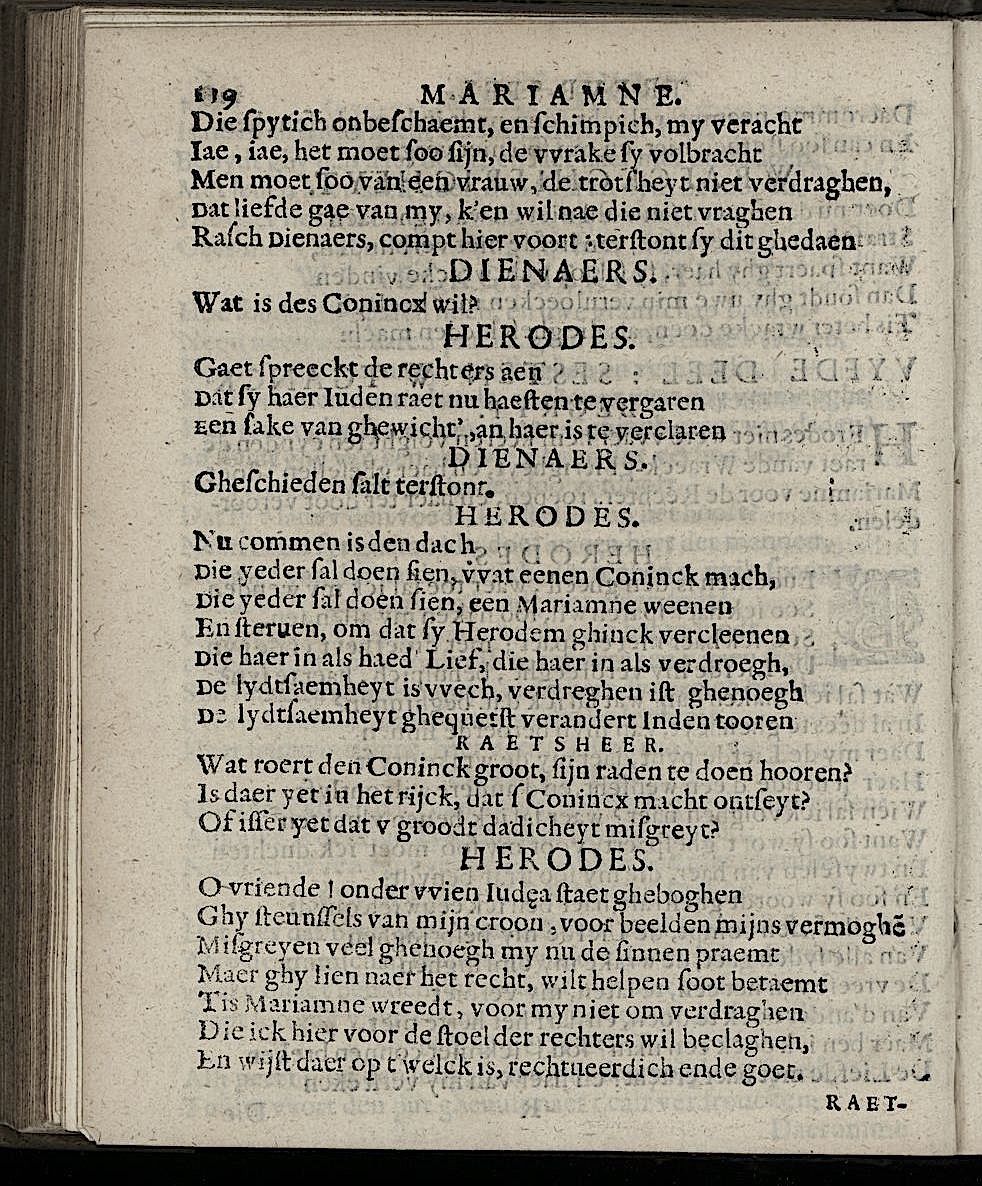 119 MARIAMNE.
Die spytich onbeschaemt, en schimpich, my veracht
Iae, iae, het moet soo sijn, de vvrake sy volbracht
Men moet soo van een vrauw, de trotsheyt niet verdraghen,
Dat liefde gae van my, k'en wil nae die niet vraghen
Rasch Dienaers, compt hier voort : terstont sy dit ghedaen
DIENAERS.
Wat is des Conincx wil?
HERODES.
Gaet spreeckt de rechters aen
Dat sy haer Iuden raet nu haesten te vergaren
Een sake van ghewicht', an haer is te verclaren
DIENAERS.
Gheschieden salt terstont.
HERODES.
Nu commen is den dach
Die yeder sal doen sien, vvat eenen Coninck mach,
Die yeder sal doen sien, een Mariamne weenen
En steruen, om dat sy Herodem ghinck vercleenen
Die haer in als haed' Lief, die haer in als verdroegh,
De lydtsaemheyt is vvech, verdreghen ist ghenoegh
De lydtsaemheyt ghequetst verandert Inden tooren
RAETSHEER.
Wat roert den Coninck groot, sijn raden te doen hooren?
Is daer yet in het rijck, dat s Conincx macht ontseyt?
Of isser yet dat v groodt dadicheyt misgreyt?
HERODES.
O vriende ! onder vvien Iudęa staet gheboghen
Ghy steunssels van mijn croon, voor beelden mijns vermoghē
Misgreyen veel ghenoegh my nu de sinnen praemt
Maer ghy lien naer het recht, wilt helpen soot betaemt
Tis Mariamne wreedt, voor my niet om verdraghen
Die ick hier voor de stoel der rechters wil beclaghen,
En wijst daer op t'welck is, rechtueerdich ende goet.
RAET-